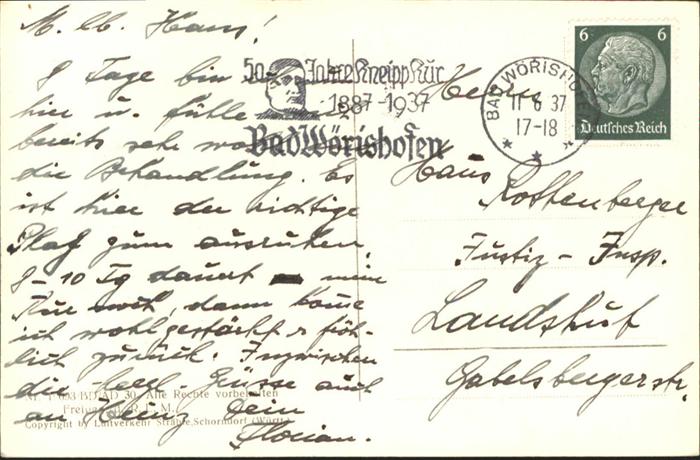 M. lb. Hans!
8 Tage bin ich
hier u. fühle mich
bereits sehr wohl
die Behandlung. Es
ist hier der richtige
Platz zum ausruhen.
8-10 Tg dauert mein
Kur noch, dann komme
ich wohlgestärkt u fröh-
lich zurück. Inzwischen
die herzl. Grüsse auch
an Heinz Dein
Florian.
50 Jahre Kneipp Kur
1887-1937
Bad Wörishofen
BAD WÖRISHOFEN
11 6 37
17-18
6 6
Deutsches Reich
Herrn
Hans
Rottenberger
Justiz-Insp.
Landshut
Gabelsbergerstr.
693/BD/AD 30. Alle Rechte vorbehalten
Freigeg. R. L. M.
Copyright by Luftverkehr Strähle, Schorndorf (Württ.)